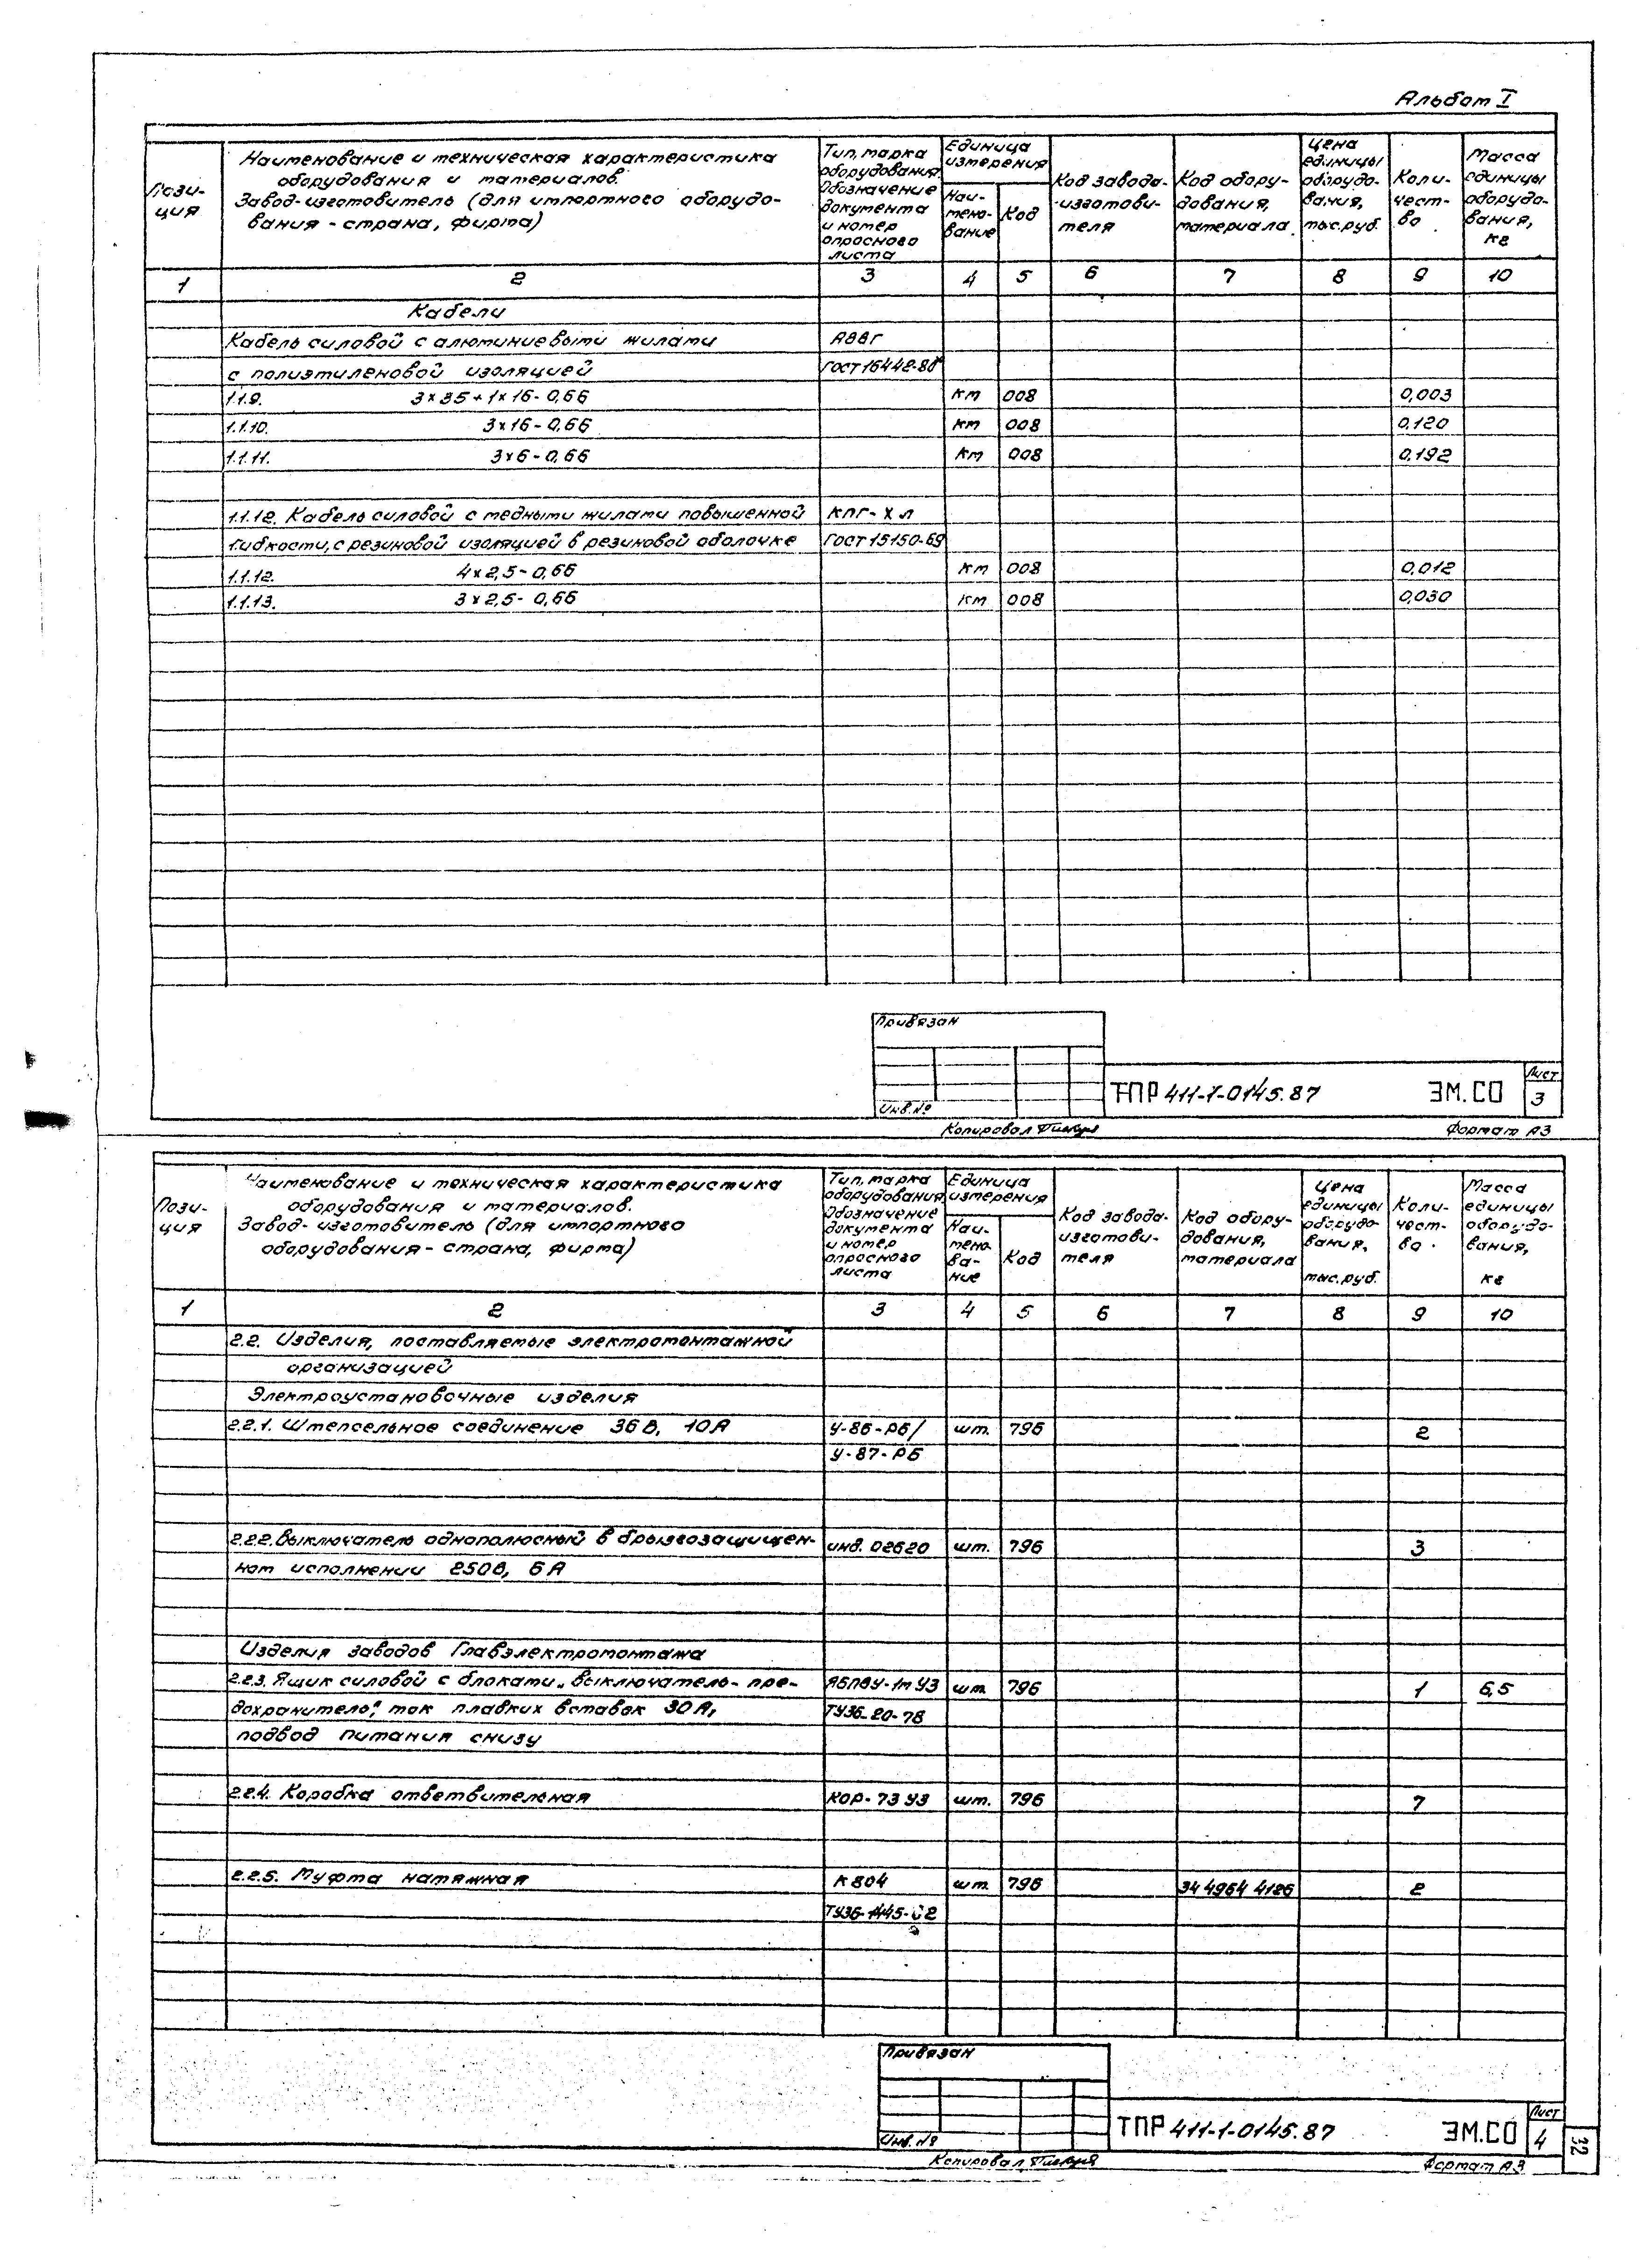 Альбом I
Пози-
ция
Наименование и техническая характеристика
оборудования и материалов.
Завод-изготовитель (для импортного оборудо-
вания - страна, фирма)
Тип, марка
оборудования.
Обозначение
документа
и номер
опросного
листа
Единица
измерения
Наи-
мено-
вание
Код
Код завода-
-изготови-
теля
Код обору-
дования,
материала
Цена
единицы
оборудо-
вания,
тыс.руб.
Коли-
чест-
во
Масса
единицы
оборудо-
вания,
кг
1 2 3 4 5 6 7 8 9 10
Кабели
Кабель силовой с алюминиевыми жилами АВВГ
с полиэтиленовой изоляцией ГОСТ 16442-80
1.1.9. 3×35+1×16-0,66 км 008 0,003
1.1.10. 3×16-0,66 км 008 0,120
1.1.11. 3×6-0,66 км 008 0,192
1.1.12. Кабель силовой с медными жилами повышенной КПГ-ХЛ
гибкости, с резиновой изоляцией в резиновой оболочке ГОСТ 15150-69
1.1.12. 4×2,5-0,66 км 008 0,012
1.1.13. 3×2,5-0,66 км 008 0,030
Привязан
Инв.№
ТПР 411-1-0145.87 ЭМ.СО
Лист
3
Копировал
Формат А3
Пози-
ция
Наименование и техническая характеристика
оборудования и материалов.
Завод-изготовитель (для импортного
оборудования - страна, фирма)
Тип, марка
оборудования
Обозначение
документа
и номер
опросного
листа
Единица
измерения
Наи-
мено-
ва-
ние
Код
Код завода-
изготови-
теля
Код обору-
дования,
материала
Цена
единицы
оборудо-
вания,
тыс.руб.
Коли-
чест-
во
Масса
единицы
оборудо-
вания,
кг
1 2 3 4 5 6 7 8 9 10
2.2. Изделия, поставляемые электромонтажной
организацией
Электроустановочные изделия
2.2.1. Штепсельное соединение 36В, 10А У-86-РБ/ шт. 796 2
У-87-РБ
2.2.2. Выключатель однополюсный в брызгозащищен- инд. 02620 шт. 796 3
ном исполнении 250В, 6А
Изделия заводов Главэлектромонтажа
2.2.3. Ящик силовой с блоками „выключатель-пре- ЯБПВУ-1м У3 шт. 796 1 6,5
дохранитель", ток плавких вставок 30А, ТУ36-20-78
подвод питания снизу
2.2.4. Коробка ответвительная КОР-73 У3 шт. 796 7
2.2.5. Муфта натяжная К804 шт. 796 34 4964 4126 2
ТУ36-1445-82
Привязан
Инв.№
ТПР 411-1-0145.87 ЭМ.СО
Лист
4
Копировал
Формат А3
32